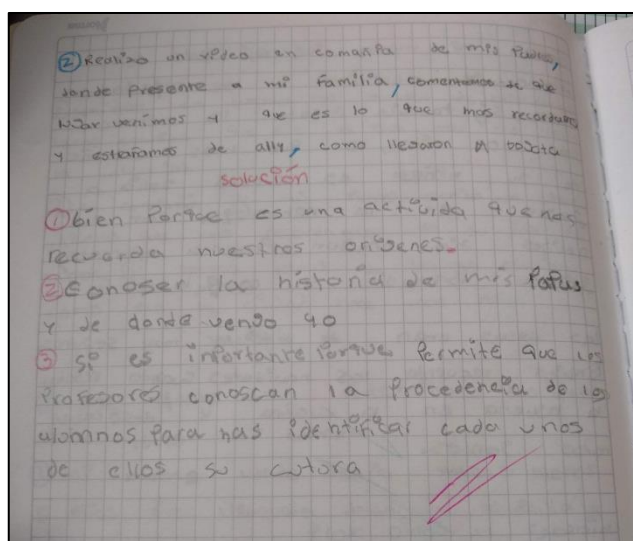 ② Realizo un video en comañia de mis Padres,
donde presente a mi familia, comentamos de que
lugar venimos y que es lo que mas recordamos
y estrañamos de ally, como llegaron a bogota
solución
① bien Porque es una activida que nos
recuerda nuestros origenes.
② Conoser la historia de mis Papas
y de donde vengo yo
③ si es importante Porque Permite que los
Profesores conoscan la Procedencia de los
alomnos Para nas identifitar cada unos
de ellos su cutora